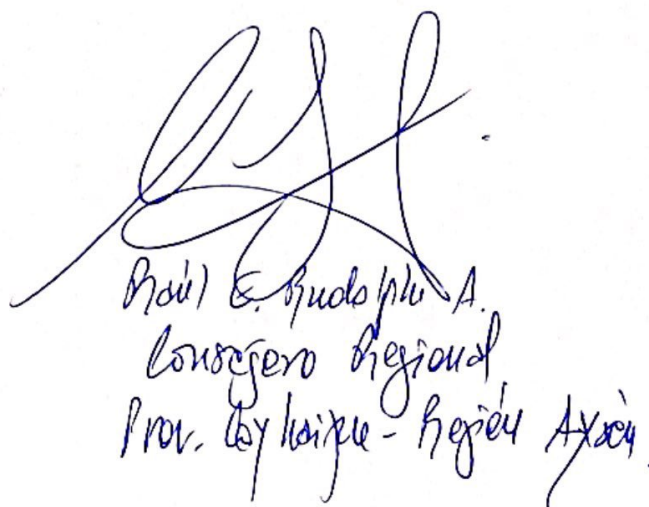 Raúl E. Rudolphi A.
Consejero Regional
Prov. Coyhaique - Región Aysén